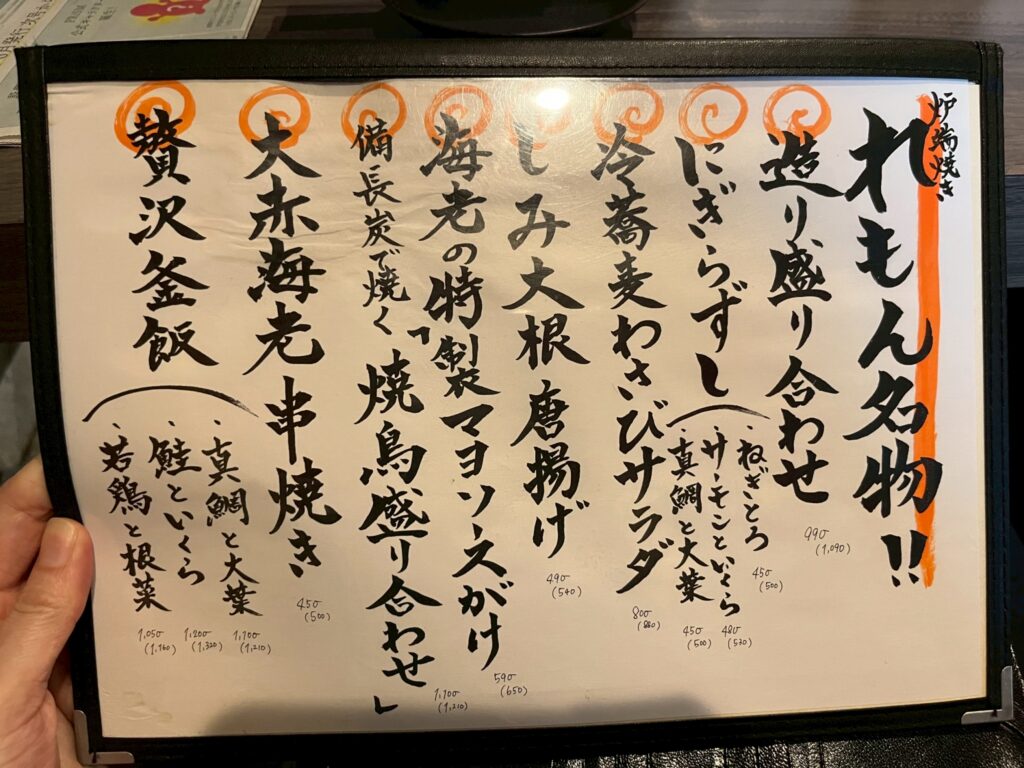 炉端焼き
れもん名物!!
造り盛り合わせ
990
(1,090)
にぎらずし
・ねぎとろ
450
(500)
・サーモンといくら
480
(530)
・真鯛と大葉
450
(500)
冷蕎麦わさびサラダ
800
(880)
しみ大根唐揚げ
490
(540)
海老の特製マヨソースがけ
590
(650)
備長炭で焼く「焼鳥盛り合わせ」
1,100
(1,210)
大赤海老串焼き
450
(500)
贅沢釜飯
・真鯛と大葉
1,100
(1,210)
・鮭といくら
1,200
(1,320)
・若鶏と根菜
1,050
(1,160)